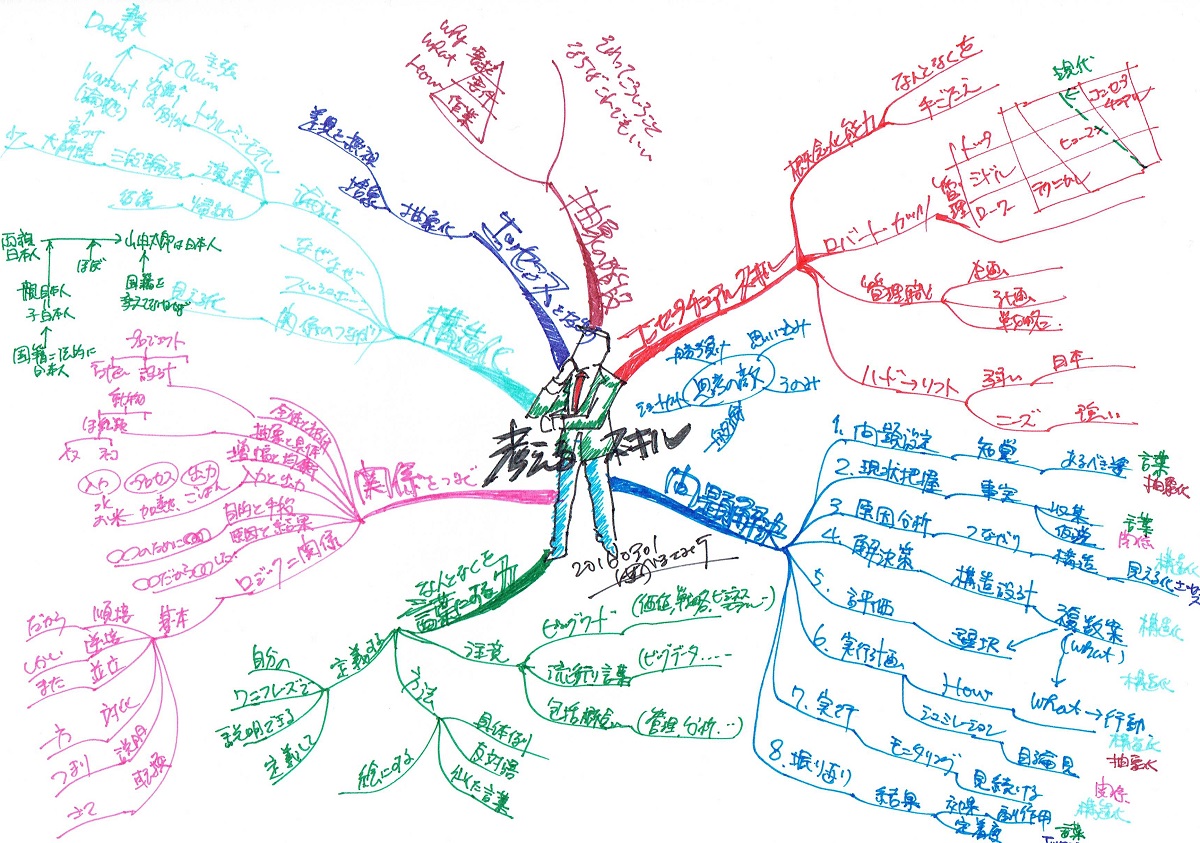 考えるスキル
20180301
コンセプチュアルスキル
概念化能力
なんとなくを
手ごたえ
ロバート・カッツ
管理
トップ
ミドル
ロワー
コンセプチュアル
ヒューマン
テクニカル
現代
管理職
企画
計画
戦略
ハード→ソフト
弱い
日本
ニーズ
強い
思考の敵
勝ち負け
思い込み
うのみ
問題解決
1.問題設定
知覚
あるべき姿
言葉
抽象化
2.現状把握
事実
収集
仮説
言葉
関係
3.原因分析
つながり
構造
見える化
構造化
4.解決策
構造設計
複数案
(what)
構造化
5.評価
選択
構造化
6.実行計画
How
what→行動
シュミレーション
目論見
構造化
抽象化
7.実行
モニタリング
見続ける
関係
構造化
8.振り返り
結果
効果
副作用
定着度
言葉
なんとなくを
言葉にする力
定義する
自分の
ワンフレーズで
説明できる
定義して
方法
具体例
反対語
似た言葉
絵にする
注意
ビッグワード
(価値、戦略、ビジネスモデル…)
流行り言葉
(ビッグデータ……
包括概念
(管理、分析…)
関係をつなぐ
全体と部分
プロジェクト
設計
抽象と具体
動物
ほ乳類
犬
ネコ
入力と出力
入力
プロセス
出力
水
お米
加熱
ごはん
目的と手段
〇〇のために〇〇
原因と結果
〇〇だから〇〇した
ロジック=関係
基本
順接
だから
逆接
しかし
並立
また
対比
一方
説明
つまり
転換
さて
構造化
論証
トゥルーミンモデル
Data
事実
Claim
主張
Warrant
(論拠)
裏づけ
演繹
三段論法
大前提
小
帰納
仮説
なぜなぜ
関係のつながり
見える化
両親
日本人
ほぼ
山田太郎は日本人
親日本人
子日本人
国籍を
変えていなければ
国籍=法的に
日本人
エッセンスをつかむ
抽象化
捨象
差異を無視
抽象のはしご
why
what
how
要求
要件
作業
それってこういうこと
ならばこれでもいい